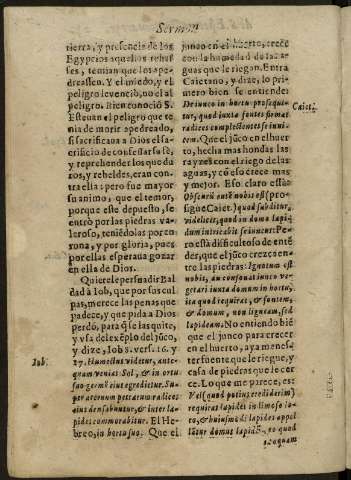 Sermon
tierra, y presencia de los
Egypcios aquellos reb
ses, temian que los ape-
dreassen. Y el miedo, y el
peligro le venció, no el al
peligro. Bien conoció S.
Esteuan el peligro que te
nia de morir apedreado,
si sacrificaua a Dios el sa-
crificio de confessar su fè,
y reprehender los que du
ros, y rebeldes, eran con-
tra ella: pero fue mayor
su animo, que el temor,
porque este depuesto, se
entrò por las piedras va-
leroso, teniẽdolas por co
rona, y por gloria, pues
por ellas esperaua gozar
en ella de Dios.
Quierele persuadir Bal
dad à Iob, que por sus cul
pas, merece las penas que
padece, y que pida a Dios
perdõ, para q̃ se las quite,
y vsa del exẽplo del junco,
y dize, Iob 8. vers. 16. y
17. Humectus videtur, ante-
quam venias Sol, & in ortu
suo germẽ eius egredietur. Su-
per aceruum petrarum radices
eius densabuntur, & inter la-
pides commorabitur. El He-
breo, in hortu suo. Que el
Iob.
junco en el huerto, crece
con la humedad de las a-
guas que le riegan. Entra
Caietano, y dize, lo pri-
mero bien, si se entiende:
De iunco in hortu prosequi-
tur, quod iuxta fontes firmat
radices complectentes se inui-
cem. Que el junco en el huer
to, hecha mas hondas las
rayzes con el riego de las
aguas, y cõ esso crece mas
y mejor. Esso claro està:
Obscurũ autẽ nobis est (pro-
sigue Caiet.) quod subditur,
videlicet, quod in domo lapi-
dum intricabit se iuncus: Pe-
ro està dificultoso de entẽ
der, que el jũco crezca en-
tre las piedras: Ignotum est
nobis, an consonat iunco ve-
getari iuxta domum in hortu,
ita quod requirat, & fontem,
& domum, non ligneam, sed
lapideam. No entiendo biẽ
que el junco para crecer
en el huerto, aya menes-
ter fuente que le riegue, y
casa de piedras que le cer
ce. Lo que me parece, es:
Vel (quod potius crediderim)
requirat lapides in limoso lo-
co, & huiusmodi lapides appel
lẽtur domus lapidũ, eo quod
Caiet.